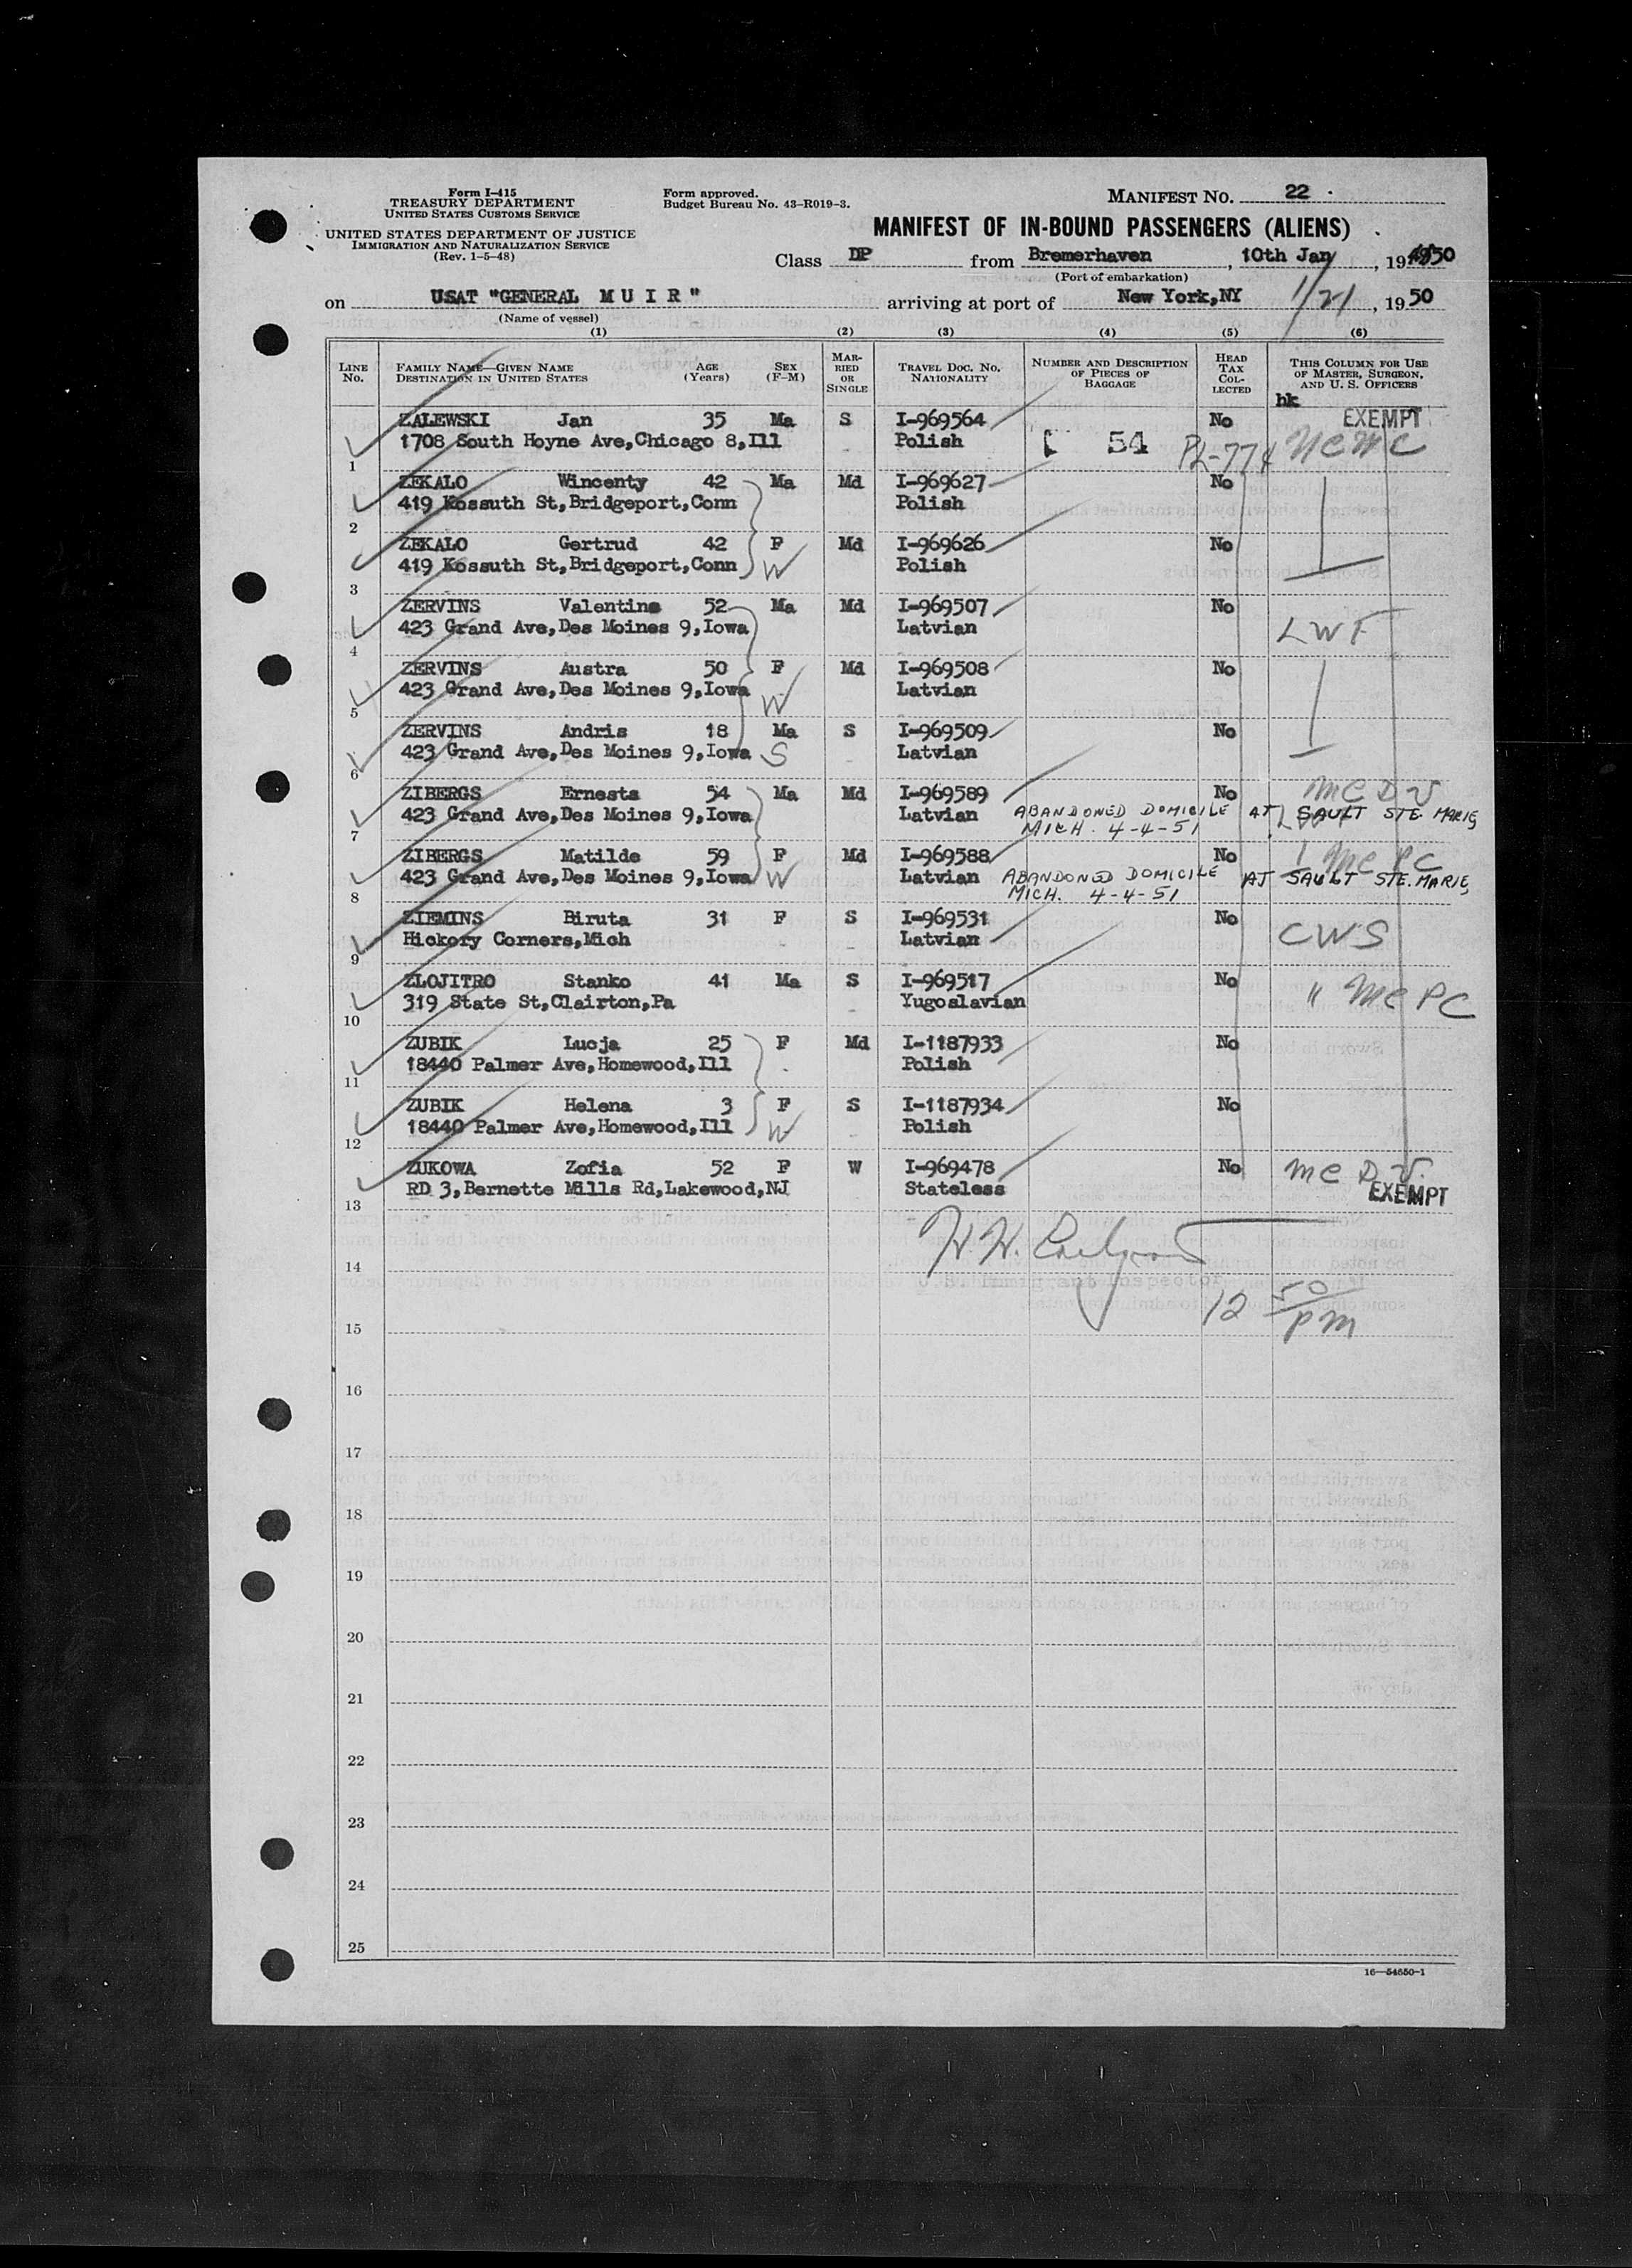 Form I-415
TREASURY DEPARTMENT
UNITED STATES CUSTOMS SERVICE
UNITED STATES DEPARTMENT OF JUSTICE
IMMIGRATION AND NATURALIZATION SERVICE
(Rev. 1-5-48)
Form approved.
Budget Bureau No. 43-R019-3.
MANIFEST NO. 22
MANIFEST OF IN-BOUND PASSENGERS (ALIENS)
Class DP from Bremerhaven, 10th Jan, 1950
(Port of embarkation)
on USAT "GENERAL M U I R" arriving at port of New York,NY 1/21, 1950
(Name of vessel)
(1) (2) (3) (4) (5) (6)
LINE NO. FAMILY NAME—GIVEN NAME DESTINATION IN UNITED STATES AGE (Years) SEX (F-M) MARRIED OR SINGLE TRAVEL DOC. NO. NATIONALITY NUMBER AND DESCRIPTION OF PIECES OF BAGGAGE HEAD TAX COLLECTED THIS COLUMN FOR USE OF MASTER, SURGEON, AND U. S. OFFICERS
hk
ZALEWSKI Jan 35 Ma S I-969564 No EXEMPT
1 1708 South Hoyne Ave,Chicago 8,Ill Polish 54 PL-774 NCWC
ZEKALO Wincenty 42 Ma Md I-969627 No
2 419 Kossuth St,Bridgeport,Conn Polish
ZEKALO Gertrud 42 F Md I-969626 No
3 419 Kossuth St,Bridgeport,Conn W Polish
ZERVINS Valentins 52 Ma Md I-969507 No
4 423 Grand Ave,Des Moines 9,Iowa Latvian LWF
ZERVINS Austra 50 F Md I-969508 No
5 423 Grand Ave,Des Moines 9,Iowa W Latvian
ZERVINS Andris 18 Ma S I-969509 No
6 423 Grand Ave,Des Moines 9,Iowa S Latvian
ZIBERGS Ernests 54 Ma Md I-969589 No MC DV
7 423 Grand Ave,Des Moines 9,Iowa Latvian ABANDONED DOMICILE AT SAULT STE. MARIE,
MICH. 4-4-51
ZIBERGS Matilde 59 F Md I-969588 No MC PC
8 423 Grand Ave,Des Moines 9,Iowa W Latvian ABANDONED DOMICILE AT SAULT STE. MARIE,
MICH. 4-4-51
ZIEMINS Biruta 31 F S I-969531 No
9 Hickory Corners,Mich Latvian CWS
ZLOJITRO Stanko 41 Ma S I-969517 No
10 319 State St,Clairton,Pa Yugoslavian " MC PC
ZUBIK Lucja 25 F Md I-1187933 No
11 18440 Palmer Ave,Homewood,Ill Polish
ZUBIK Helena 3 F S I-1187934 No
12 18440 Palmer Ave,Homewood,Ill W Polish
ZUKOWA Zofia 52 F W I-969478 No MC DV.
13 RD 3,Bernette Mills Rd,Lakewood,NJ Stateless EXEMPT
14
U.S. Immigrant Inspector
12 50/pm
15
16
17
18
19
20
21
22
23
24
25
16—54650-1